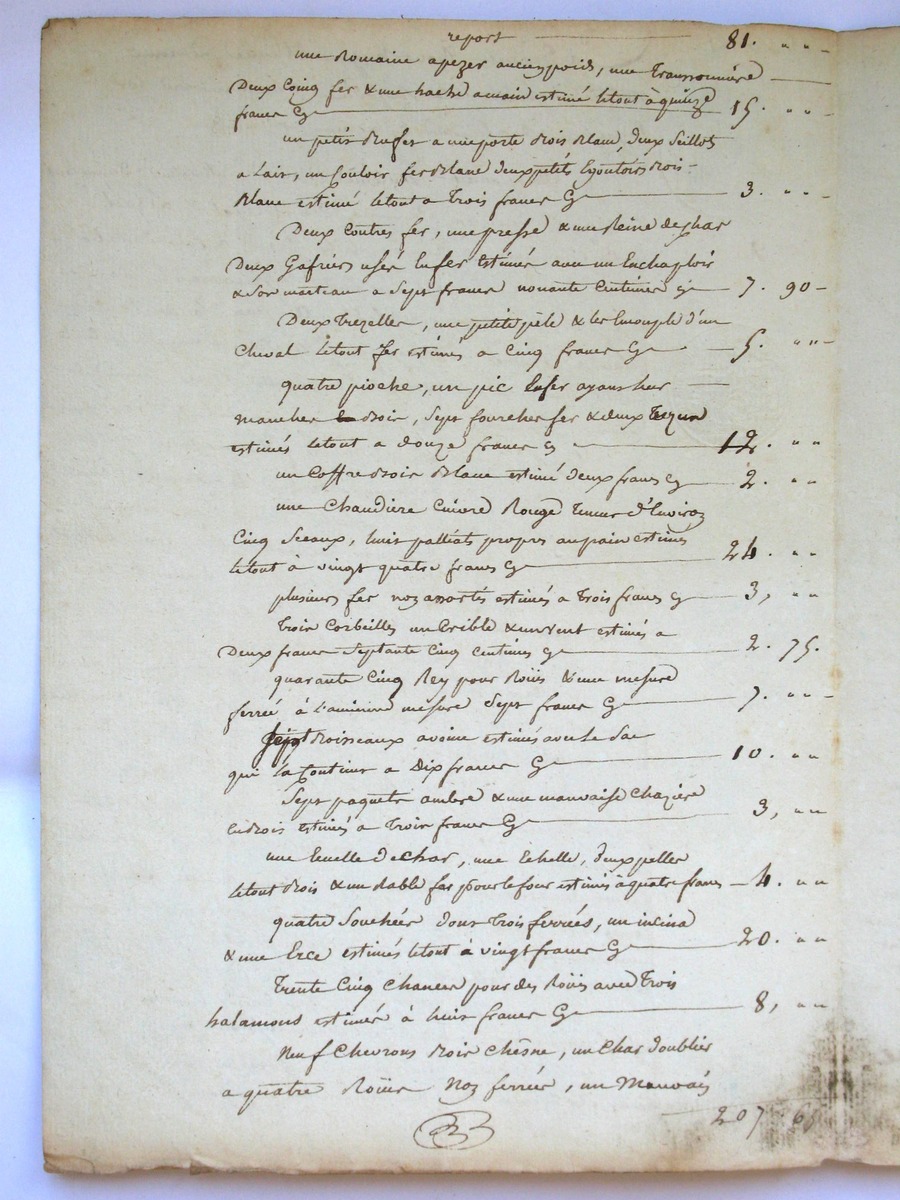 report 81. " "
une Romaine a pezer ancien poids, une Transonnière
Deux Coing fer & une hache a main estimé letout à quinze
francs Cy 15. " "
un petit Buffet a une porte Bois Blanc, deux Seillots
a Lait, un Couloir fer Blanc deux petits Bois
Blanc estimé letout a Trois francs Cy 3. " "
Deux Contres fer, une presse & une Reine de char
Deux usés en fer Estimés avec un Enchaploir
& Son marteau a Sept francs nonante Centimes cy 7. 90
Deux Trezelles, une petite pèle & les d'un
Cheval letout fer estimés a Cinq francs Cy 5. " "
quatre pioche, un pic en fer ayans leur
manches Bois, Sept fourches fer & deux
estimés letout a douze francs cy 12. " "
un Coffre Bois Blanc estimé deux francs cy 2. " "
une Chaudière Cuivre Rouge Teneur d'Environ
Cinq Sceaux, huit palliats propres au pain estimés
letout à vingt quatre francs Cy 24. " "
plusieurs fer noz assortés estimés a Trois francs cy 3, " "
Trois Corbeilles un Crible & un vent estimés a
Deux francs Septante Cinq Centimes cy 2. 75.
quarante Cinq Rey pour Roües & une mesure
ferrée à L'ancienne mesure Sept francs Cy 7. " "
Boisseaux avoine estimés avec le Sac
qui la Contient a Dix francs Cy 10. " "
Sept paquets & une mauvaise Chazière
en Bois estimés a Trois francs Cy 3, " "
une Euelle de char, une Echelle, deux pelles
letout Bois & un Rable fer pour le four estimés à quatre francs 4. " "
quatre dont Trois ferrées, un
& une Erce estimés letout à vingt francs Cy 20. " "
Trente Cinq Chanees pour des Roües avec Trois
halamons estimés à huit francs Cy 8, " "
Neuf Chevrons Bois Chêsne, un Char doublier
a quatre Roües Noz ferrées, un Mauvais
207. 65